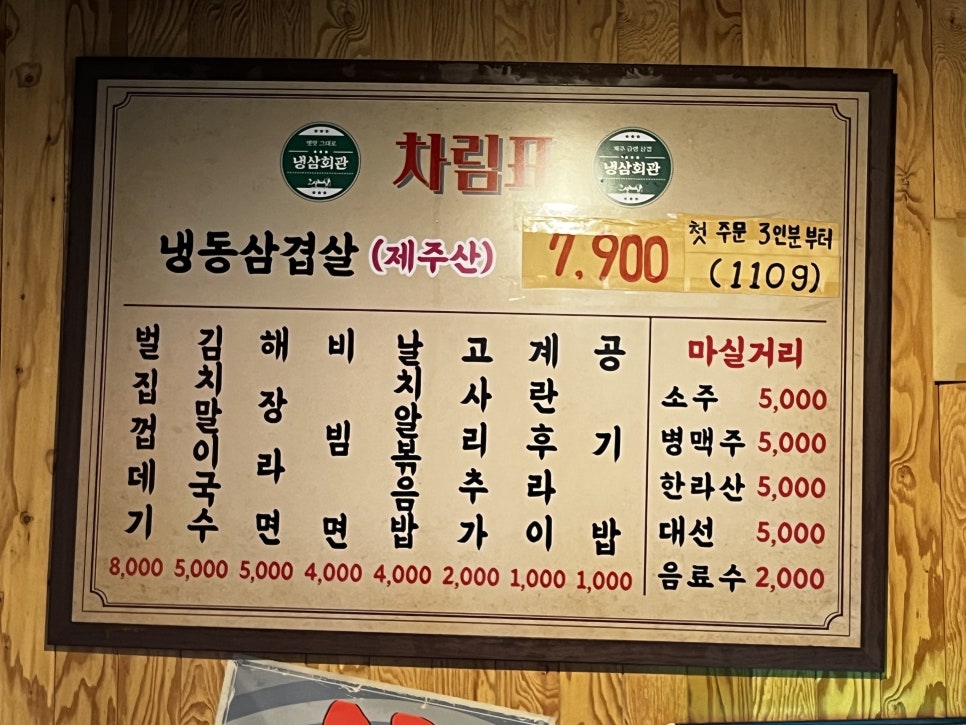 차림표
옛맛 그대로
냉삼회관
제주 급랭 삼겹
냉삼회관
냉동삼겹살 (제주산) 7,900 첫 주문 3인분부터
(110g)
벌집껍데기 8,000
김치말이국수 5,000
해장라면 5,000
비빔면 4,000
날치알볶음밥 4,000
고사리추가 2,000
계란후라이 1,000
공기밥 1,000
마실거리
소주 5,000
병맥주 5,000
한라산 5,000
대선 5,000
음료수 2,000